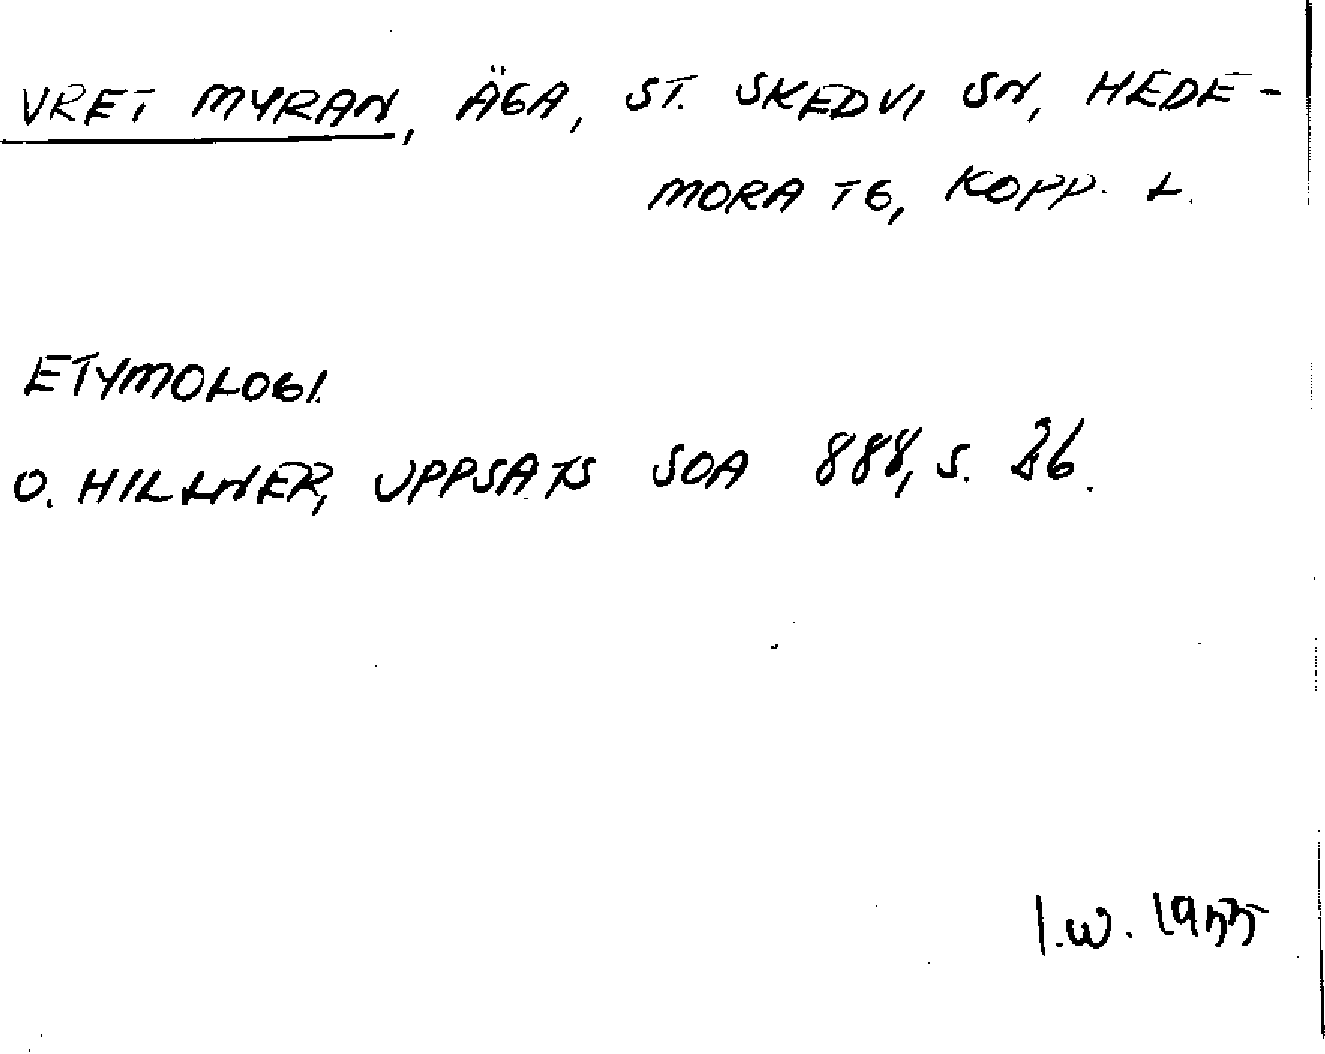 VRET MYRAN, ÄGA, ST. SKEDVI SN, HEDE-
MORA TG, KOPP. L.
ETYMOLOGI.
O. HILLNER, UPPSATS SOA 888, S. 26.
I.W. 1955